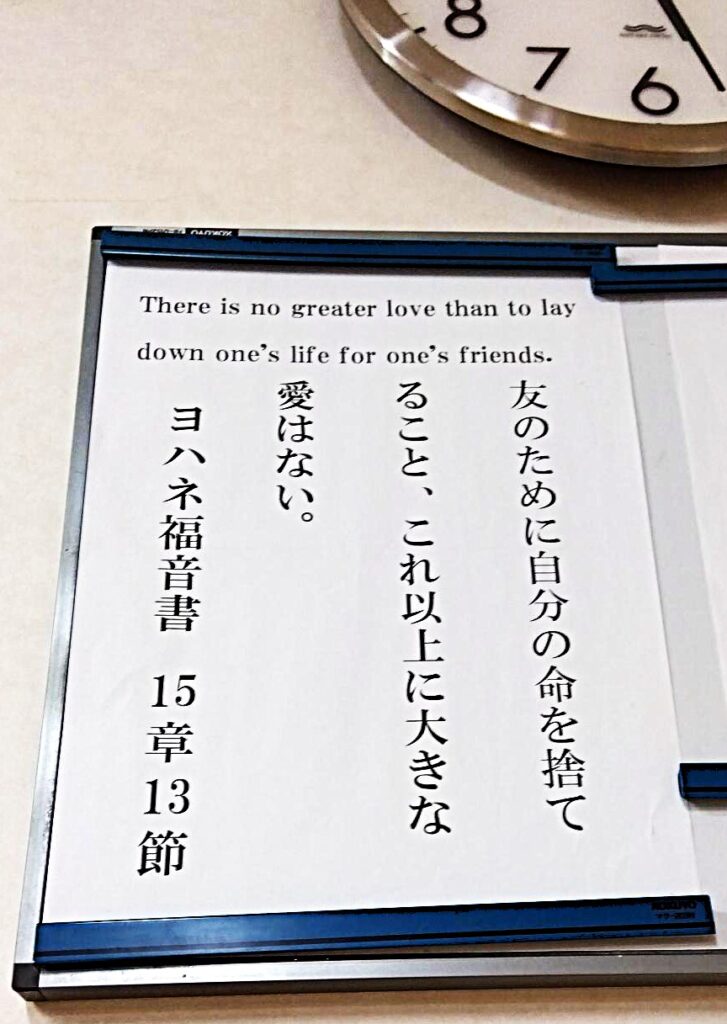 8
7
6
There is no greater love than to lay
down one's life for one's friends.
友のために自分の命を捨て
ること、これ以上に大きな
愛はない。
ヨハネ福音書 15章13節
KOKUYO